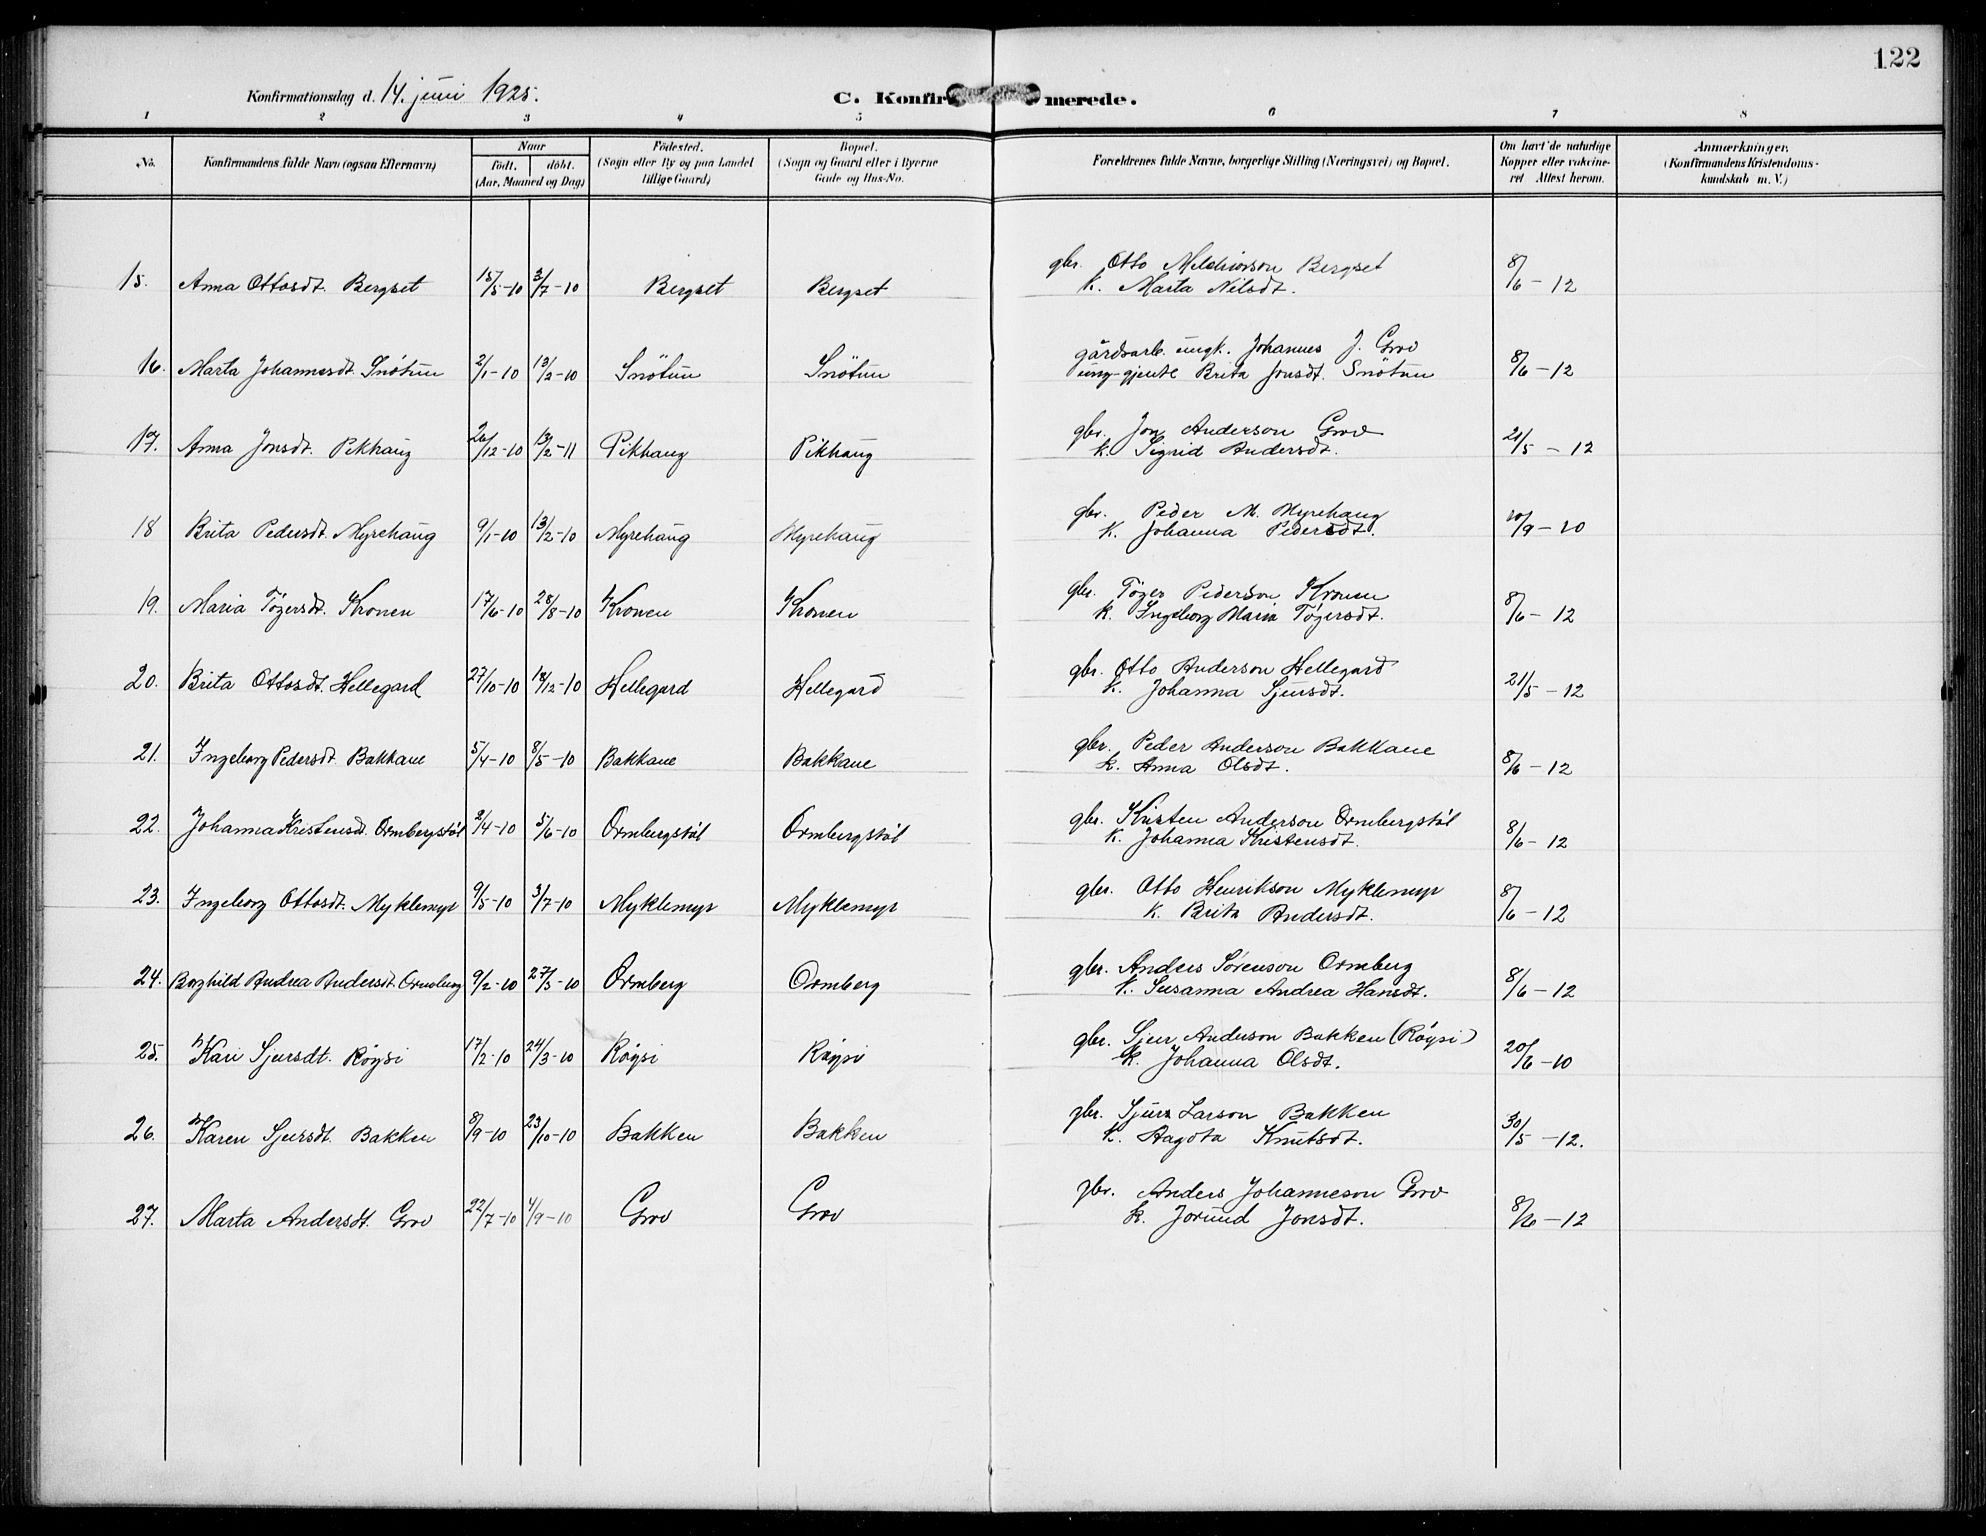 122
Konfirmationsdag d. 14. juni 1925.
C. Konfir merede.
1 2 3 4 5 6 7 8
No. Konfirmandens fulde Navn (ogsaa Efternavn) Naar födt. döbt. (Aar, Maaned og Dag) Födested. (Sogn eller By og paa Landet tillige Gaard) Bopæl. (Sogn og Gaard eller i Byerne Gade og Hus-No. Forældrenes fulde Navne, borgerlige Stilling (Næringsvei) og Bopæl. Om havt de naturlige Kopper eller vakcineret Attest herom. Anmærkninger. (Konfirmandens Kristendomskundskab m. V.)
15. Anna Ottosdt. Bergset 15/5-10 3/7-10 Bergset Bergset gbr. Otto Melchiorson Bergset 8/6-12
K. Marta Nilsdt.
16. Marta Johannesdt. Snötun 2/1-10 13/2-10 Snötun Snötun gårdsarb. ungk. Johannes J. Grov 8/6-12
ung-gjente Brita Jonsdt. Snötun
17. Anna Jonsdt. Pikhaug 26/12-10 13/2-11 Pikhaug Pikhaug gbr. Jon Anderson Grov 21/5-12
K. Sigrid Andersdt.
18 Brita Pedersdt. Myrehaug 9/1-10 13/2-10 Myrehaug Myrehaug gbr. Peder M. Myrehaug 10/9-10
K. Johanna Pedersdt.
19. Maria Tögersdt. Kronen 17/6-10 28/8-10 Kronen Kronen gbr. Töger Pederson Kronen 8/6-12
K. Ingeborg Maria Tögersdt.
20. Brita Ottosdt. Hellegard 27/10-10 18/12-10 Hellegard Hellegard gbr. Otto Anderson Hellegard 21/5-12
K. Johanna Sjursdt.
21. Ingeborg Pedersdt. Bakkane 5/4-10 8/5-10 Bakkane Bakkane gbr. Peder Anderson Bakkane 8/6-12
K. Anna Olsdt.
22. Johanna Kristensdt. Ormbergstøl 2/4-10 5/6-10 Ormbergstøl Ormbergstøl gbr. Kristen Anderson Ormbergstøl 8/6-12
K. Johanna Kristensdt.
23. Ingeborg Ottosdt. Myklemyr 9/5-10 3/7-10 Myklemyr Myklemyr gbr. Otto Henrikson Myklemyr 8/6-12
K. Brita Andersdt.
24. Borghild Andrea Andersdt. Ormberg 9/2-10 27/3-10 Ormberg Ormberg gbr. Anders Sörenson Ormberg 8/6-12
K. Susanna Andrea Hansdt.
25. Kari Sjursdt. Röysi 17/2-10 24/3-10 Röysi Röysi gbr. Sjur Anderson Bakken (Röysi) 20/6-10
K. Johanna Olsdt.
26. Karen Sjursdt. Bakken 8/9-10 23/10-10 Bakken Bakken gbr. Sjur Larson Bakken 30/5-12.
K. Aagota Knutsdt.
27. Marta Andersdt. Grov 22/7-10 4/9-10 Grov Grov gbr. Anders Johanneson Grov 8/6-12
K. Jorund Jonsdt.